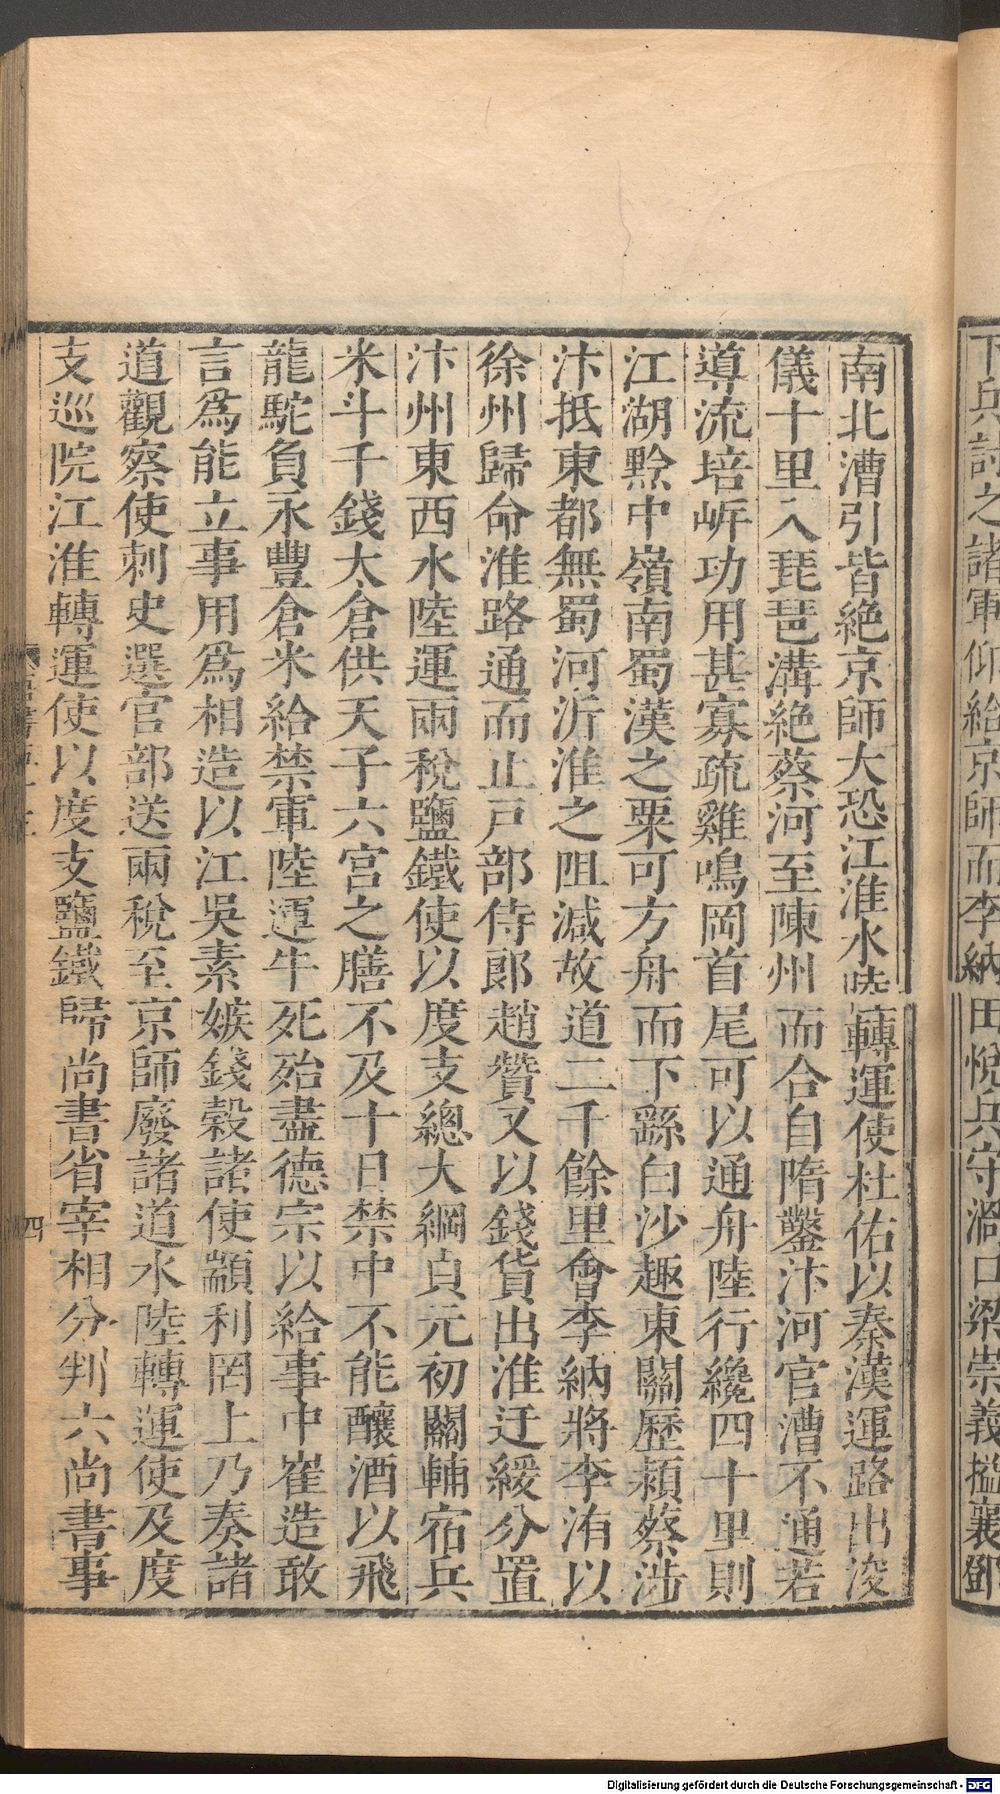 下兵討之諸軍仰給京師而李納田悅兵守渦口梁崇義搤襄鄧
南北漕引皆絶京師大恐江淮水陸轉運使杜佑以秦漢運路出浚
儀十里入琵琶溝絶蔡河至陳州而合自隋鑿汴河官漕不通若
導流培岸功用甚寡疏雞鳴岡首尾可以通舟陸行纔四十里則
江湖黔中嶺南蜀漢之粟可方舟而下繇白沙趣東關歷潁蔡涉
汴抵東都無蜀河泝淮之阻減故道二千餘里會李納將李洧以
徐州歸命淮路通而止戸部侍郎趙贊又以錢貨出淮迂緩分置
汴州東西水陸運兩稅鹽鐵使以度支總大綱貞元初關輔宿兵
米斗千錢大倉供天子六宮之膳不及十日禁中不能釀酒以飛
龍駝負永豐倉米給禁軍陸運牛死殆盡德宗以給事中崔造敢
言爲能立事用爲相造以江吳素嫉錢穀諸使顓利罔上乃奏諸
道觀察使刺史選官部送兩稅至京師廢諸道水陸轉運使及度
支巡院江淮轉運使以度支鹽鐵歸尚書省宰相分判六尚書事
四
Digitalisierung gefördert durch die Deutsche Forschungsgemeinschaft - DFG